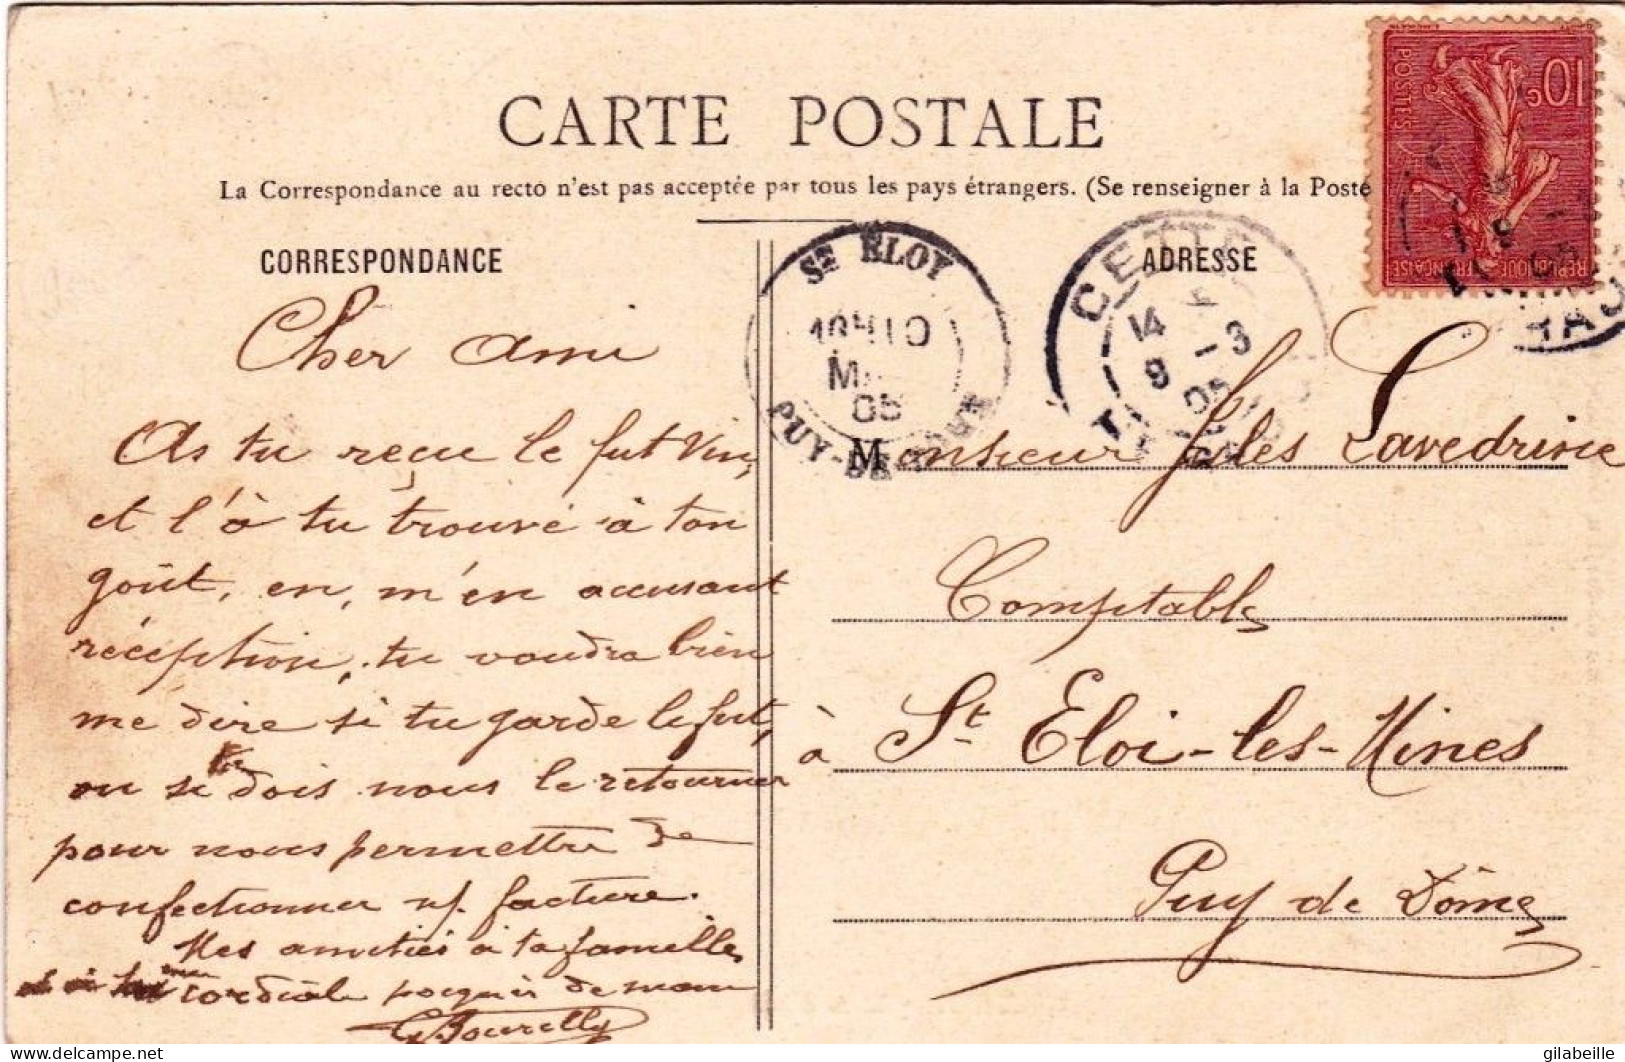 CARTE POSTALE
La Correspondance au recto n'est pas acceptée par tous les pays étrangers. (Se renseigner à la Poste
CORRESPONDANCE
Cher Ami
As tu reçu le fut Vin,
et l'à tu trouvé à ton
goût, en, m'en accusant
réception, tu voudra bien
me dire si tu garde le fut,
ou si tu dois nous le retourner
pour nous permettre de
confectionner n/. facture.
Mes amitiés à ta famille
cordiale poignée de main
ADRESSE
Monsieur Jules Lavedrine
Comptable
à St Eloi-les-Mines
Puy de Dôme
10c
POSTES
REPUBLIQUE FRANÇAISE
ST ELOY
05
PUY-DE-DOME
CETTE
14
9 -3
05
gilabeille